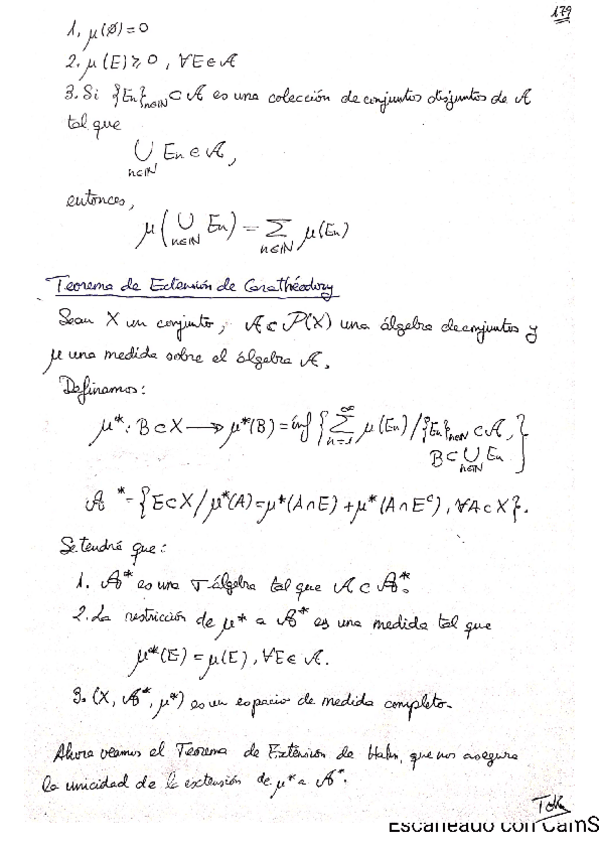 179
1. μ(∅)=0
2. μ(E)≥0, ∀E∈𝒜
3. Si {En}n∈ℕ ⊂ 𝒜 es una colección de conjuntos disjuntos de 𝒜
tal que
⋃n∈ℕ En ∈ 𝒜,
entonces,
μ(⋃n∈ℕ En) = ∑n∈ℕ μ(En)
Teorema de Extensión de Carathéodory
Sean X un conjunto, 𝒜 ⊂ 𝒫(X) una álgebra de conjuntos y
μ una medida sobre el álgebra 𝒜.
Definamos:
μ*: B⊂X ⟶ μ*(B) = inf {∑n=1^∞ μ(En) / {En}n∈ℕ ⊂ 𝒜,
B ⊂ ⋃n∈ℕ En}
𝒜* = {E⊂X / μ*(A) = μ*(A∩E) + μ*(A∩Eᶜ), ∀A⊂X}.
Se tendrá que:
1. 𝒜* es una σ-álgebra tal que 𝒜 ⊂ 𝒜*.
2. La restricción de μ* a 𝒜* es una medida tal que
μ*(E) = μ(E), ∀E∈𝒜.
3. (X, 𝒜*, μ*) es un espacio de medida completo.
Ahora veamos el Teorema de Extensión de Hahn, que nos asegura
la unicidad de la extensión de μ* a 𝒜*.
Escaneado con CamS